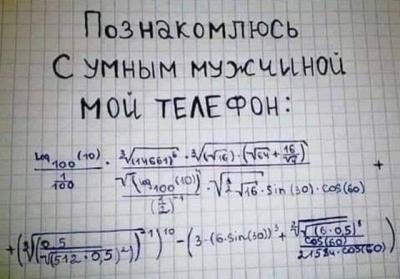 Познакомлюсь
С умным мужчиной
мой телефон:
log₁₀₀(10) / (1/100) · ³√(14661)⁶ · ³√((√16) · (√64 + 16/√4)) / (√(log₁₀₀(10)) / (1/2)⁻¹ · √(²√16) · sin(30) · cos(60)) +
+ (³√((0,5 / √(512 · 0,5)²))²⁻¹)¹⁰ − (3 · (6 · sin(30))³ + ³√(√(6 · 0,5)⁸ / cos(60)) / 21584 · cos(60))